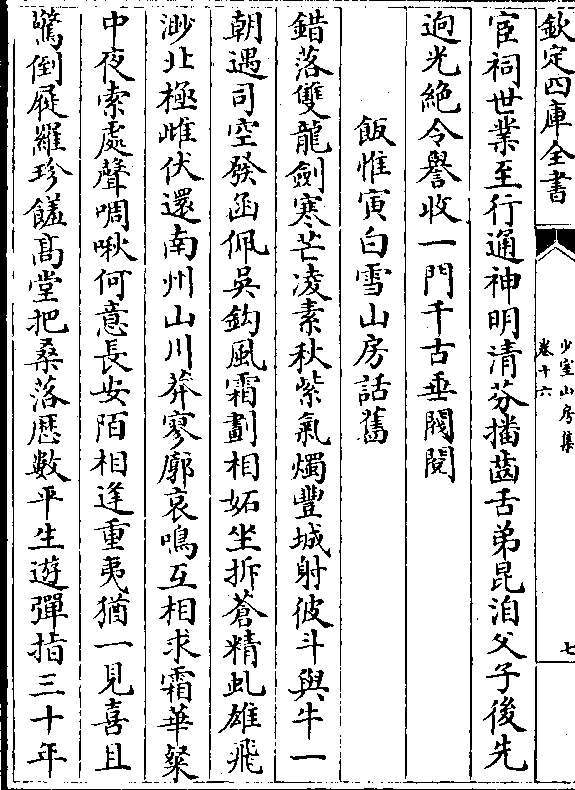 欽定四庫全書
少室山房集
卷十六
七
宦祠世業至行通神明清芬播齒舌弟昆洎父子後先
逈光絶令譽收一門千古垂閥閱
飯惟寅白雪山房話舊
錯落雙龍劍寒芒凌素秋紫氣燭豐城射彼斗與牛一
朝遇司空發函佩吳鈎風霜劃相妬坐拆蒼精虬雄飛
渺北極雌伏還南州山川莽寥廓哀鳴互相求霜華粲
中夜索處聲啁啾何意長安陌相逢重夷猶一見喜且
驚倒屣羅珍饈髙堂把桑落歴數平生遊彈指三十年